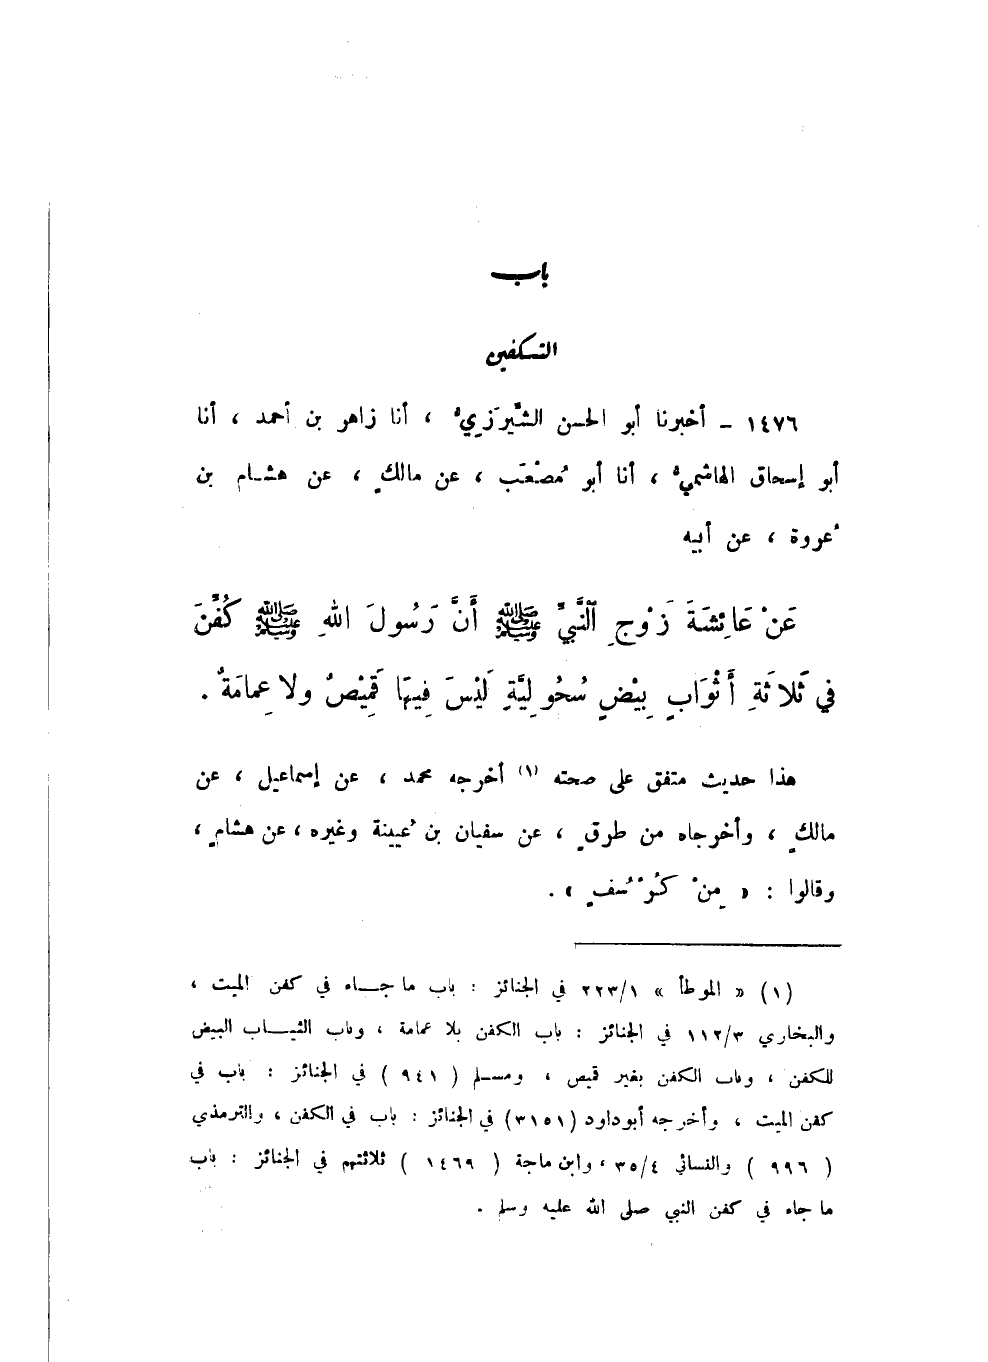 باب
التكفين
١٤٧٦ - أخبرنا أبو الحسن الشَّيرَزيُّ ، أنا زاهر بن أحمد ، أنا
أبو إسحاق الهاشميُّ ، أنا أبو مُصْعَب ، عن مالكٍ ، عن هشام بن
عُروة ، عن أبيه
عَنْ عَائِشَةَ زَوْجِ ٱلنَّبِيِّ ﷺ أَنَّ رَسُولَ اللهِ ﷺ كُفِّنَ
في ثَلاثَةِ أَثْوَابٍ بِيْضٍ سُحُولِيَّةٍ لَيْسَ فِيهَا قَمِيْصٌ ولا عِمامَةٌ .
هذا حديث متفق على صحته (١) أخرجه محمد ، عن إسماعيل ، عن
مالكٍ ، وأخرجاه من طرقٍ ، عن سفيان بن عُيينة وغيره ، عن هشامٍ ،
وقالوا : « مِنْ كُرْسُفٍ » .
(١) « الموطأ » ٢٢٣/١ في الجنائز : باب ما جاء في كفن الميت ،
والبخاري ١١٢/٣ في الجنائز : باب الكفن بلا عمامة ، وباب الثياب البيض
للكفن ، وباب الكفن بغير قميص ، ومسلم ( ٩٤١ ) في الجنائز : باب في
كفن الميت ، وأخرجه أبو داود (٣١٥١) في الجنائز : باب في الكفن ، والترمذي
( ٩٩٦ ) والنسائي ٣٥/٤ ، وابن ماجة ( ١٤٦٩ ) ثلاثتهم في الجنائز : باب
ما جاء في كفن النبي صلى الله عليه وسلم .